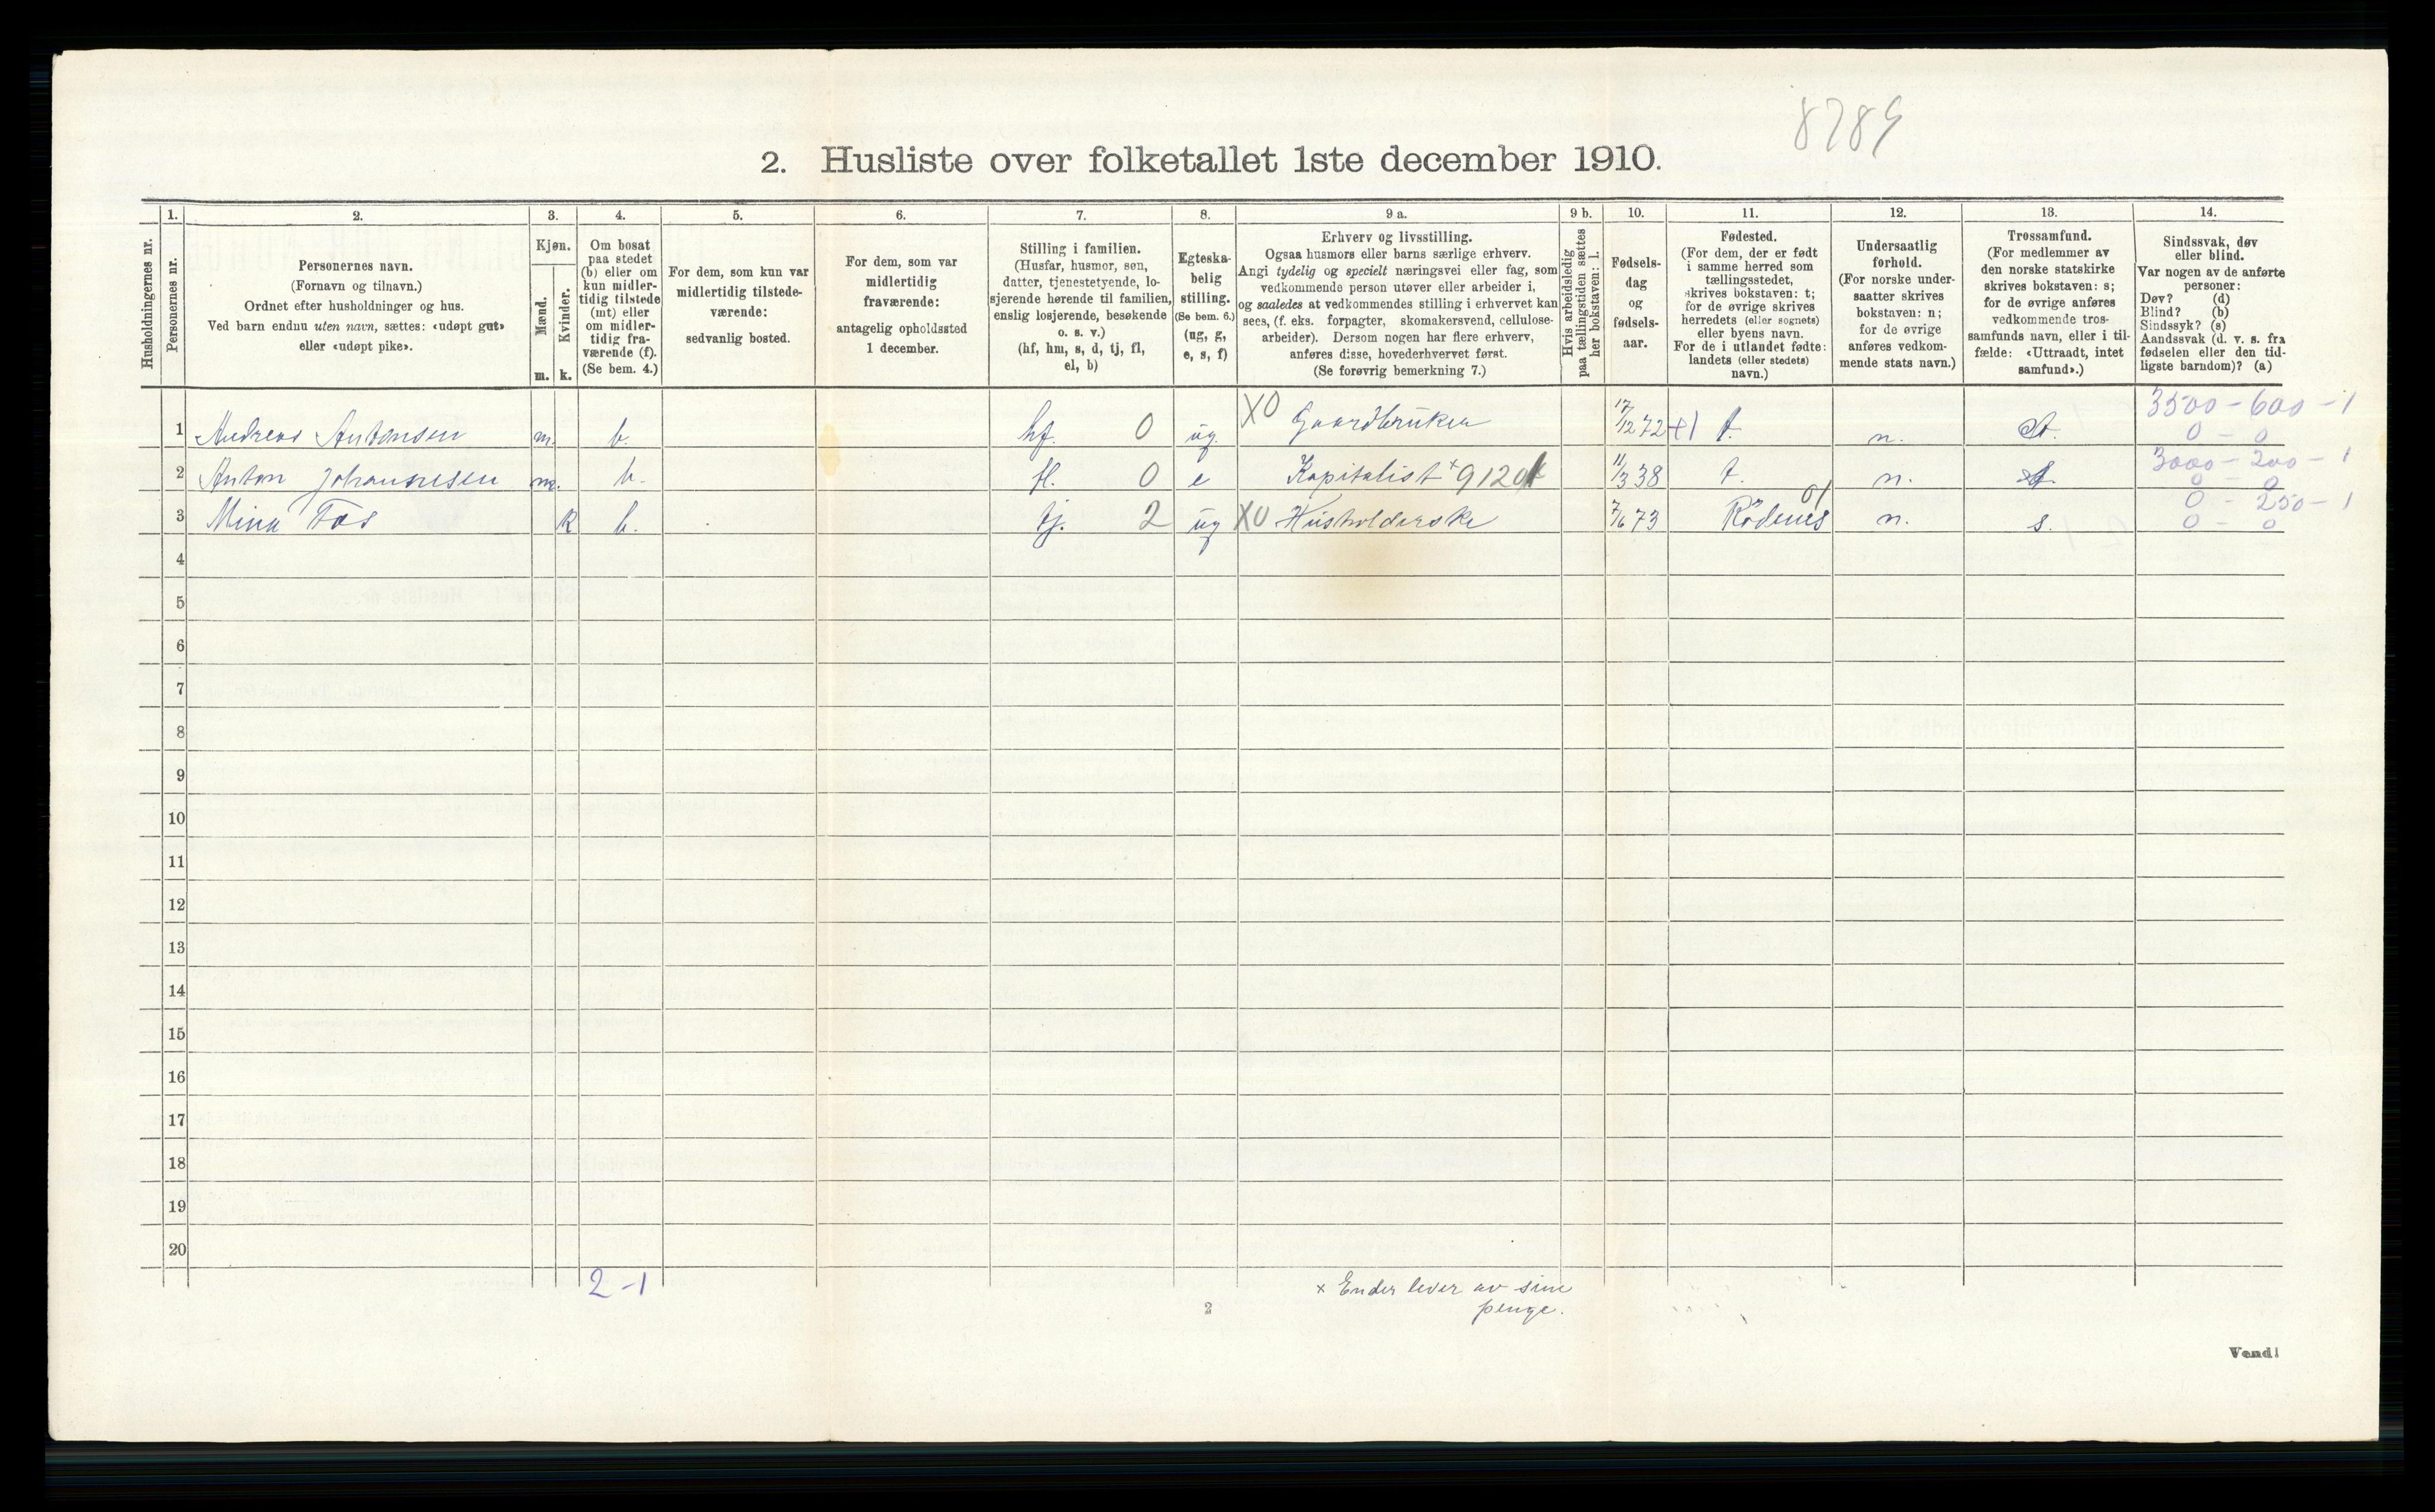 8789
2. Husliste over folketallet 1ste december 1910.
Husholdningernes nr.
1.
Personernes nr.
2.
Personernes navn.
(Fornavn og tilnavn.)
Ordnet efter husholdninger og hus.
Ved barn endnu uten navn, sættes: «udøpt gut»
eller «udøpt pike».
3.
Kjøn.
Mænd.
Kvinder.
m. k.
4.
Om bosat
paa stedet
(b) eller om
kun midler-
tidig tilstede
(mt) eller
om midler-
tidig fra-
værende (f).
(Se bem. 4.)
5.
For dem, som kun var
midlertidig tilstede-
værende:
sedvanlig bosted.
6.
For dem, som var
midlertidig
fraværende:
antagelig opholdssted
1 december.
7.
Stilling i familien.
(Husfar, husmor, søn,
datter, tjenestetyende, lo-
sjerende hørende til familien,
enslig losjerende, besøkende
o. s. v.)
(hf, hm, s, d, tj, fl,
el, b)
8.
Egteska-
belig
stilling.
(Se bem. 6.)
(ug, g,
e, s, f)
9 a.
Erhverv og livsstilling.
Ogsaa husmors eller barns særlige erhverv.
Angi tydelig og specielt næringsvei eller fag, som
vedkommende person utøver eller arbeider i,
og saaledes at vedkommendes stilling i erhvervet kan
sees, (f. eks. forpagter, skomakersvend, cellulose-
arbeider). Dersom nogen har flere erhverv,
anføres disse, hovederhvervet først.
(Se forøvrig bemerkning 7.)
9 b.
Hvis arbeidsledig
paa tællingstiden sættes
her bokstaven: l.
10.
Fødsels-
dag
og
fødsels-
aar.
11.
Fødested.
(For dem, der er født
i samme herred som
tællingsstedet,
skrives bokstaven: t;
for de øvrige skrives
herredets (eller sognets)
eller byens navn.
For de i utlandet fødte:
landets (eller stedets)
navn.)
12.
Undersaatlig
forhold.
(For norske under-
saatter skrives
bokstaven: n;
for de øvrige
anføres vedkom-
mende stats navn.)
13.
Trossamfund.
(For medlemmer av
den norske statskirke
skrives bokstaven: s;
for de øvrige anføres
vedkommende tros-
samfunds navn, eller i til-
fælde: «Uttraadt, intet
samfund».)
14.
Sindssvak, døv
eller blind.
Var nogen av de anførte
personer:
Døv? (d)
Blind? (b)
Sindssyk? (s)
Aandssvak (d. v. s. fra
fødselen eller den tid-
ligste barndom)? (a)
3500 - 600 - 1
1 Andreas Antonsen m. b. hf. 0 ug. X0 Gaardbruker 17/12 72 t. n. 0 - 0
3000 - 200 - 1
2 Anton Johannesen m. b. fl. 0 e Kapitalist × 9120 11/3 38 t. n. 0 - 0
0 - 250 - 1
3 Mina Fos k b. tj. 2 ug X0 Husholderske 7/6 73 Rödenes 01 n. s. 0 - 0
4
5
6
7
8
9
10
11
12
13
14
15
16
17
18
19
20
2 - 1
× Ender lever av sine
penge.
2
Vend!